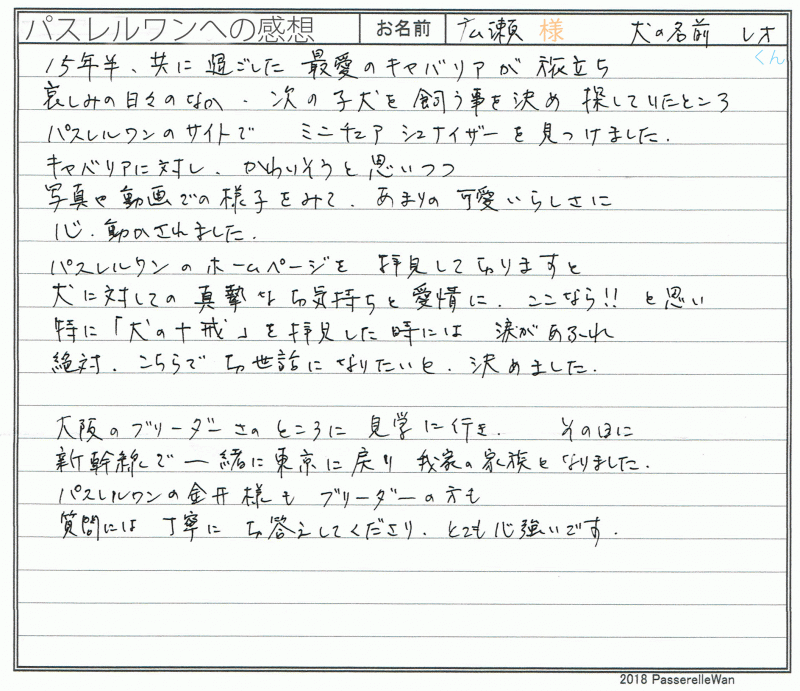 パスレルワンへの感想 お名前 広瀬 様 犬の名前 レオくん
15年半、共に過ごした 最愛のキャバリアが 旅立ち
哀しみの日々のなか、次の子犬を飼う事を決め 探していたところ
パスレルワンのサイトで ミニチュア シュナイザーを見つけました.
キャバリアに対し、かわいそうと思いつつ
写真や動画での様子をみて、あまりの可愛いらしさに
心、動かされました.
パスレルワンのホームページを 拝見しておりますと
犬に対しての真摯なお気持ちと愛情に、ここなら!! と思い
特に「犬の十戒」を拝見した時には 涙があふれ
絶対、こちらでお世話になりたいと、決めました.
大阪のブリーダーさんのところに 見学に行き、 その日に
新幹線で一緒に東京に戻り 我家の家族となりました.
パスレルワンの金井様も ブリーダーの方も
質問には 丁寧に お答えしてくださり、とても心強いです.
2018 PasserelleWan